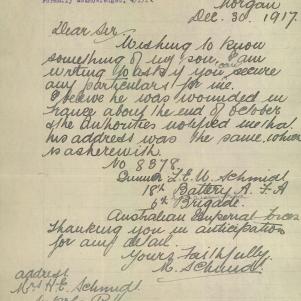 Formally acknowledged, 4/1/18
Morgan
Dec. 30. 1917.
Dear Sir.
Wishing to know
something of my son, I am
writing to ask if you can secure
any particulars for me.
I believe he was wounded in
France about the end of October
& the Authorities notified me that
his address was the same, which
is as herewith.
No 8378.
Gunner L. E. W. Schmidt
18th Battery A. F. A
6th Brigade.
Australian Imperial Forces
Thanking you in anticipation
for any detail.
Yours Faithfully.
M. Schmidt.
address
Mrs H. E. Schmidt